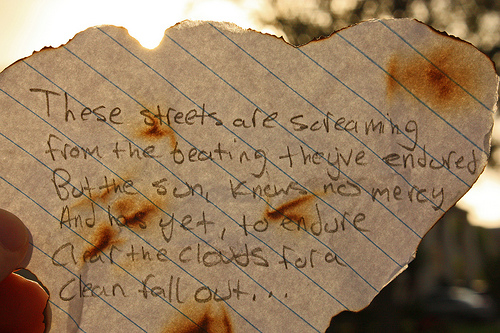 These streets are screaming
from the beating they've endured
But the sun, knows no mercy
And has yet, to endure
Clear the clouds for a
Clean fall out...